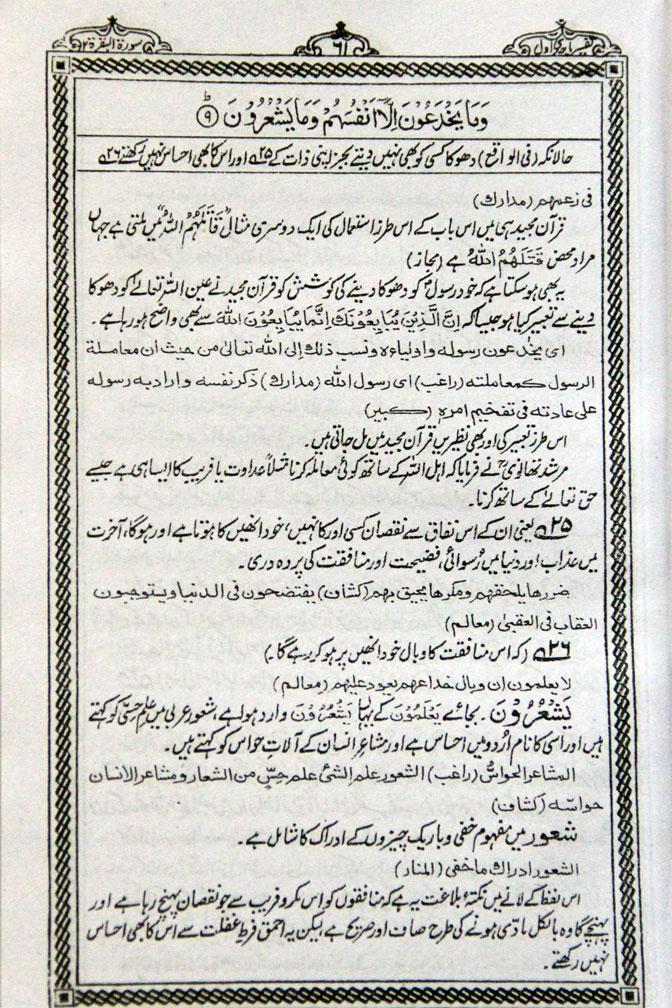 تفسیر ماجدی اوّل
۶۱
سورۃ البقرۃ ۲
وَمَا يَخْدَعُوْنَ اِلَّآ اَنْفُسَهُمْ وَمَا يَشْعُرُوْنَ ﴿۹﴾ ط
حالانکہ (فی الواقع) دھوکا کسی کو بھی نہیں دیتے بجز اپنی ذات کے ۲۵ اور اس کا بھی احساس نہیں رکھتے ۲۶
فی زعمہم (مدارک)
قرآن مجید ہی میں اس باب کے اس طرز استعمال کی ایک دوسری مثال "قَاتَلَهُمُ اللّٰهُ" میں ملتی ہے جہاں
مراد محض قَتَلَهُمُ اللّٰهُ ہے (مجاز)
یہ بھی ہو سکتا ہے کہ خود رسولؐ کو دھوکا دینے کی کوشش کو قرآن مجید نے عین اللہ تعالےٰ کو دھوکا
دینے سے تعبیر کیا ہو جیسا کہ اِنَّ الَّذِيْنَ يُبَايِعُوْنَكَ اِنَّمَا يُبَايِعُوْنَ اللّٰهَ سے بھی واضح ہو رہا ہے۔
ای یخٰدعون رسوله واولیاءه ونسب ذلك الی اللہ تعالیٰ من حیث ان معاملة
الرسول کمعاملته (راغب) ای رسول اللہ (مدارک) ذکر نفسه واراد به رسوله
علی عادته فی تفخیم امرہ (کبیر)
اس طرز تعبیر کی اور بھی نظیریں قرآن مجید میں مل جاتی ہیں۔
مرشد تھانویؒ نے فرمایا کہ اہل اللہ کے ساتھ کوئی معاملہ کرنا مثلاً عداوت یا فریب کا ایسا ہی ہے جیسے
حق تعالےٰ کے ساتھ کرنا۔
۲۵ یعنی ان کے اس نفاق سے نقصان کسی اور کا نہیں، خود انھیں کا ہوتا ہے اور ہوگا، آخرت
میں عذاب اور دنیا میں رُسوائی، فضیحت اور منافقت کی پردہ دری۔
ضررها یلحقهم ومکرها یحیق بهم (کشاف) یفتضحون فی الدنیا ویستوجبون
العقاب فی العقبیٰ (معالم)
۲۶ (کہ اس منافقت کا وبال خود انھیں پر ہو کر رہے گا۔)
لا یعلمون ان وبال خداعهم یعود علیهم (معالم)
يَشْعُرُوْنَ۔ بجائے یَعْلَمُوْنَ کے یہاں يَشْعُرُوْنَ وارد ہوا ہے، شعور عربی میں علم حِسّی کو کہتے
ہیں اور اسی کا نام اُردو میں احساس ہے اور مشاعر انسان کے آلاتِ حواس کو کہتے ہیں۔
المشاعر الحواسُّ (راغب) الشعور علم الشئ علم حِسٍّ من الشعار ومشاعر الانسان
حواسّه (کشاف)
شعور میں مفہوم خفی و باریک چیزوں کے ادراک کا شامل ہے۔
الشعور ادراك ما خفی (المنار)
اس لفظ کے لانے میں نکتۂ بلاغت یہ ہے کہ منافقوں کو اس مکر و فریب سے جو نقصان پہنچ رہا ہے اور
پہنچے گا وہ بالکل مادّی ہونے کی طرح صاف اور صریح ہے لیکن یہ احمق فرطِ غفلت سے اس کا بھی احساس
نہیں رکھتے۔